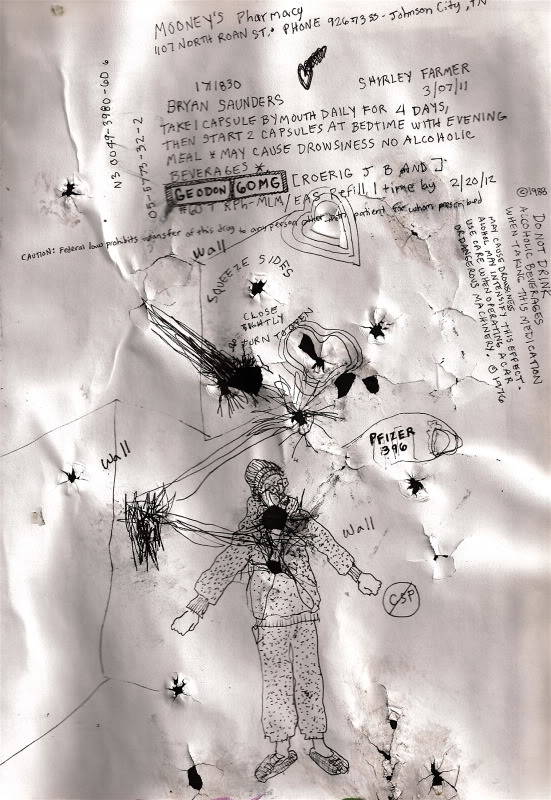 MOONEY'S Pharmacy
1107 NORTH ROAN ST. PHONE 926-7355 - Johnson City, TN
171830
SHIRLEY FARMER
BRYAN SAUNDERS
3/07/11
TAKE 1 CAPSULE BY MOUTH DAILY FOR 4 DAYS,
THEN START 2 CAPSULES AT BEDTIME WITH EVENING
MEAL * MAY CAUSE DROWSINESS NO ALCOHOLIC
BEVERAGES *
GEODON 60MG [ROERIG J B AND]
RPh-MLM / EAS Refill 1 time by 2/20/12
CAUTION: Federal law prohibits transfer of this drug to any person other than patient for whom prescribed
N3 0049-3980-60 6
05-5773-32-2
©1988
DO NOT DRINK
ALCOHOLIC BEVERAGES
WHEN TAKING THIS MEDICATION
MAY CAUSE DROWSINESS
ALOHOL MAY INTENSIFY THIS EFFECT.
USE CARE WHEN OPERATING A CAR
OR DANGEROUS MACHINERY. ©1976
Wall
SQUEEZE SIDES
CLOSE
TIGHTLY
TURN TO OPEN
PFIZER
396
Wall
Wall
CSP